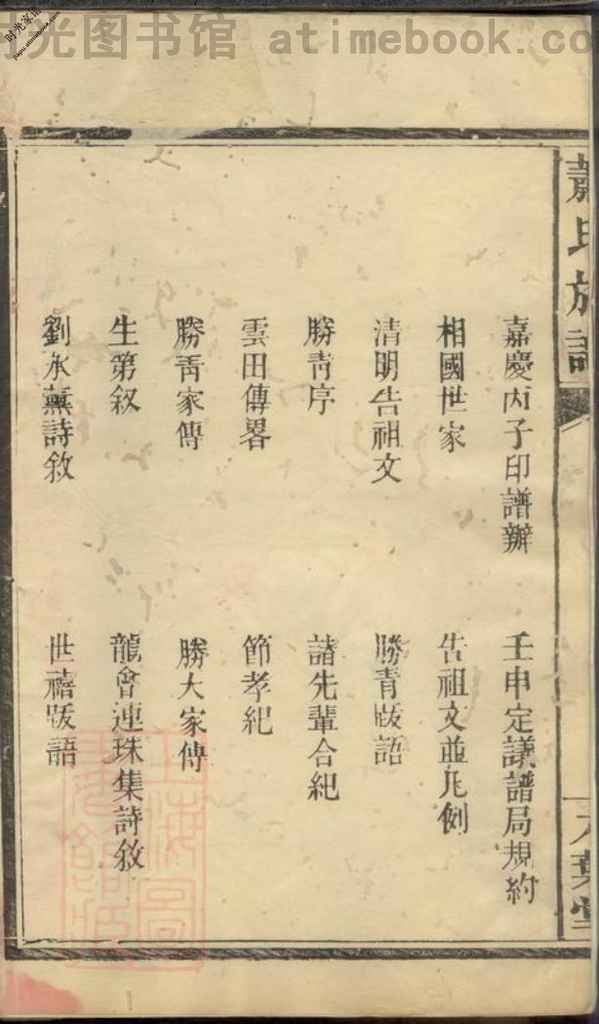 时光图书馆 atimebook.co
蕭氏族譜
嘉慶丙子印譜辦
壬申定議譜局規約
相國世家
告祖文並凡例
清明告祖文
勝青跋語
勝青序
諸先輩合紀
雲田傳畧
節孝紀
勝青家傳
勝大家傳
生第敘
龍會連珠集詩敘
劉永薰詩敘
世禧跋語
八葉堂